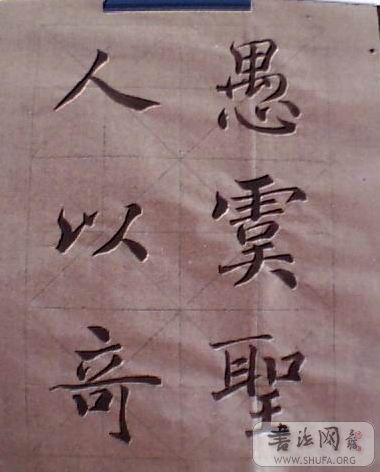 愚虞聖
人以竒
書法网
WWW.SHUFA.ORG